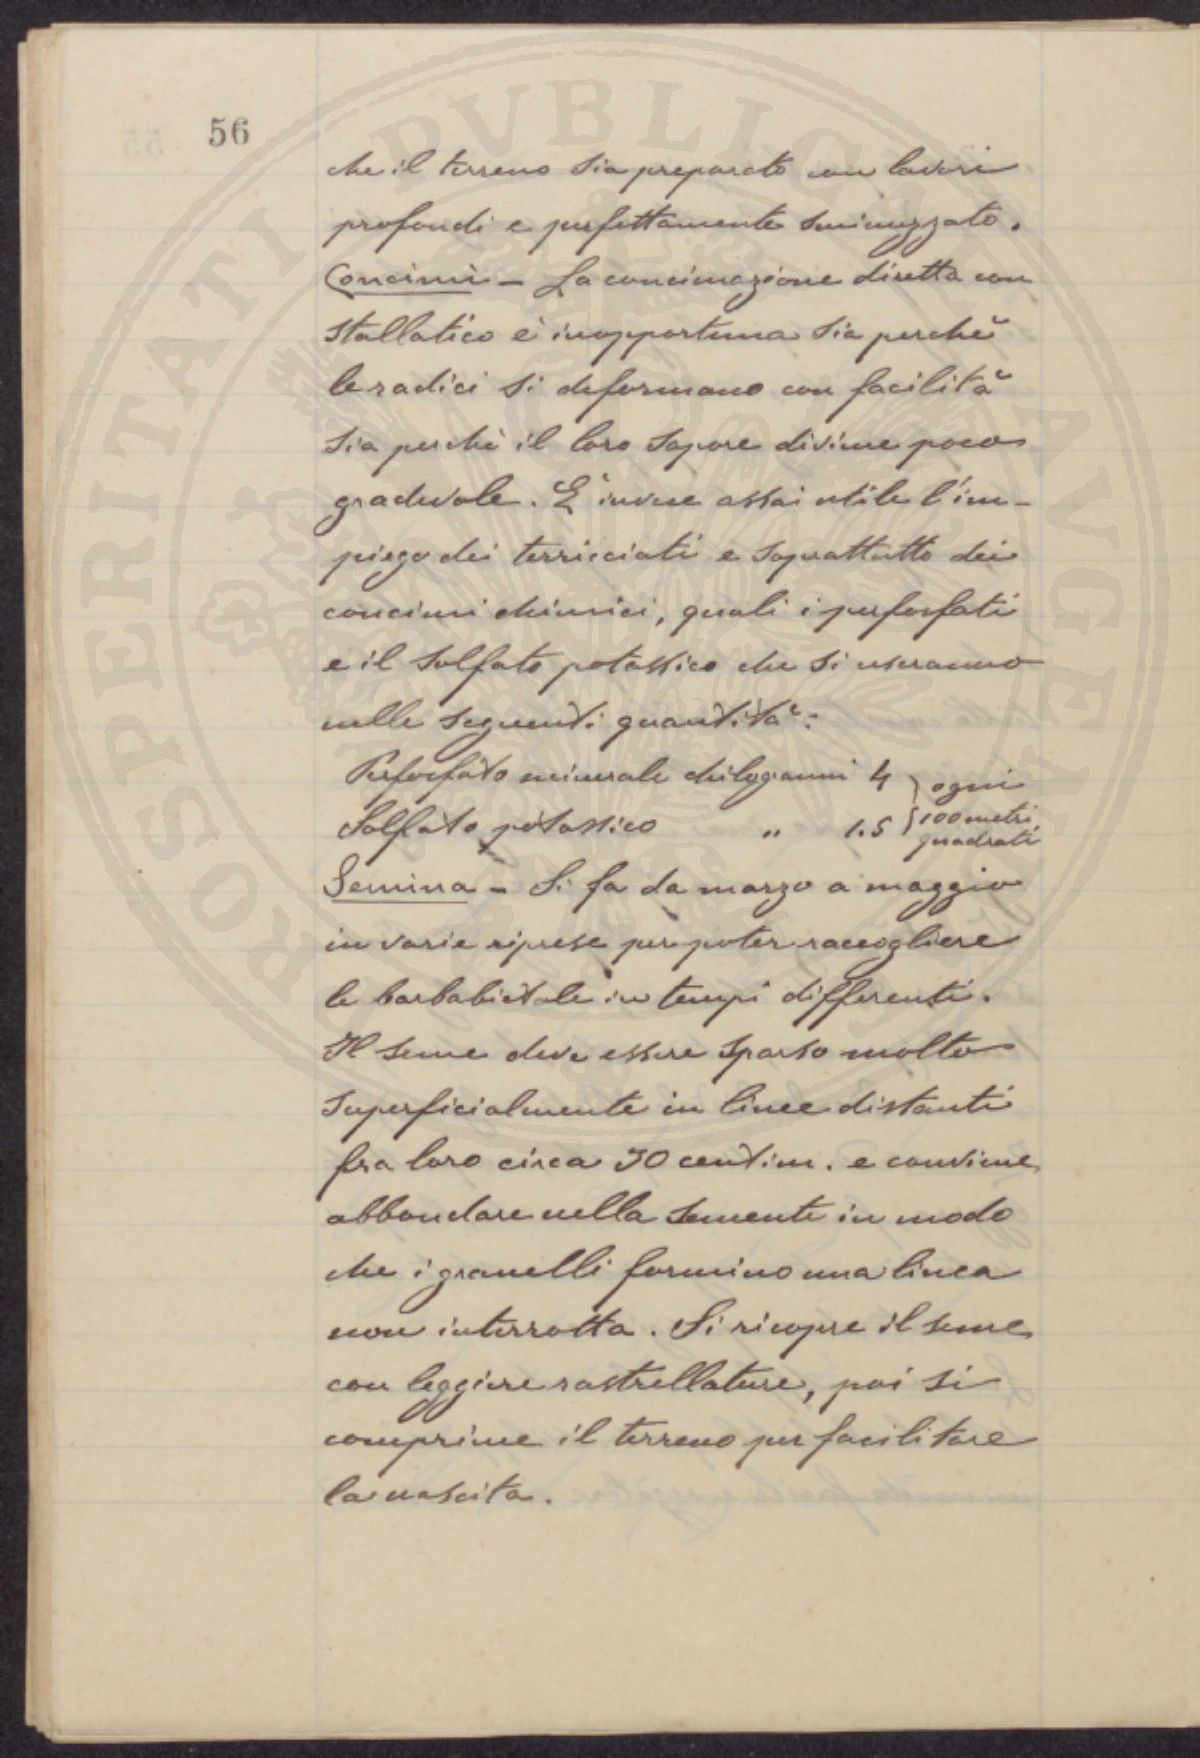 PROSPERITATI PVBLICAE AVGENDAE
56
che il terreno sia preparato con lavori
profondi e perfettamente sminuzzato.
Concimi - La concimazione diretta con
stallatico è inopportuna sia perchè
le radici si deformano con facilità
sia perchè il loro sapore diviene poco
gradevole. È invece assai utile l'im-
piego dei terricciati e soprattutto dei
concimi chimici, quali i perfosfati
e il solfato potassico che si useranno
nelle seguenti quantità:
Perfosfato minerale chilogrammi 4 } ogni
Solfato potassico " 1.5 } 100 metri
quadrati
Semina - Si fa da marzo a maggio
in varie riprese per poter raccogliere
le barbabietole in tempi differenti.
Il seme deve essere sparso molto
superficialmente in linee distanti
fra loro circa 30 centim. e conviene
abbondare nella semente in modo
che i granelli formino una linea
non interrotta. Si ricopre il seme
con leggiere rastrellature, poi si
comprime il terreno per facilitare
la nascita.